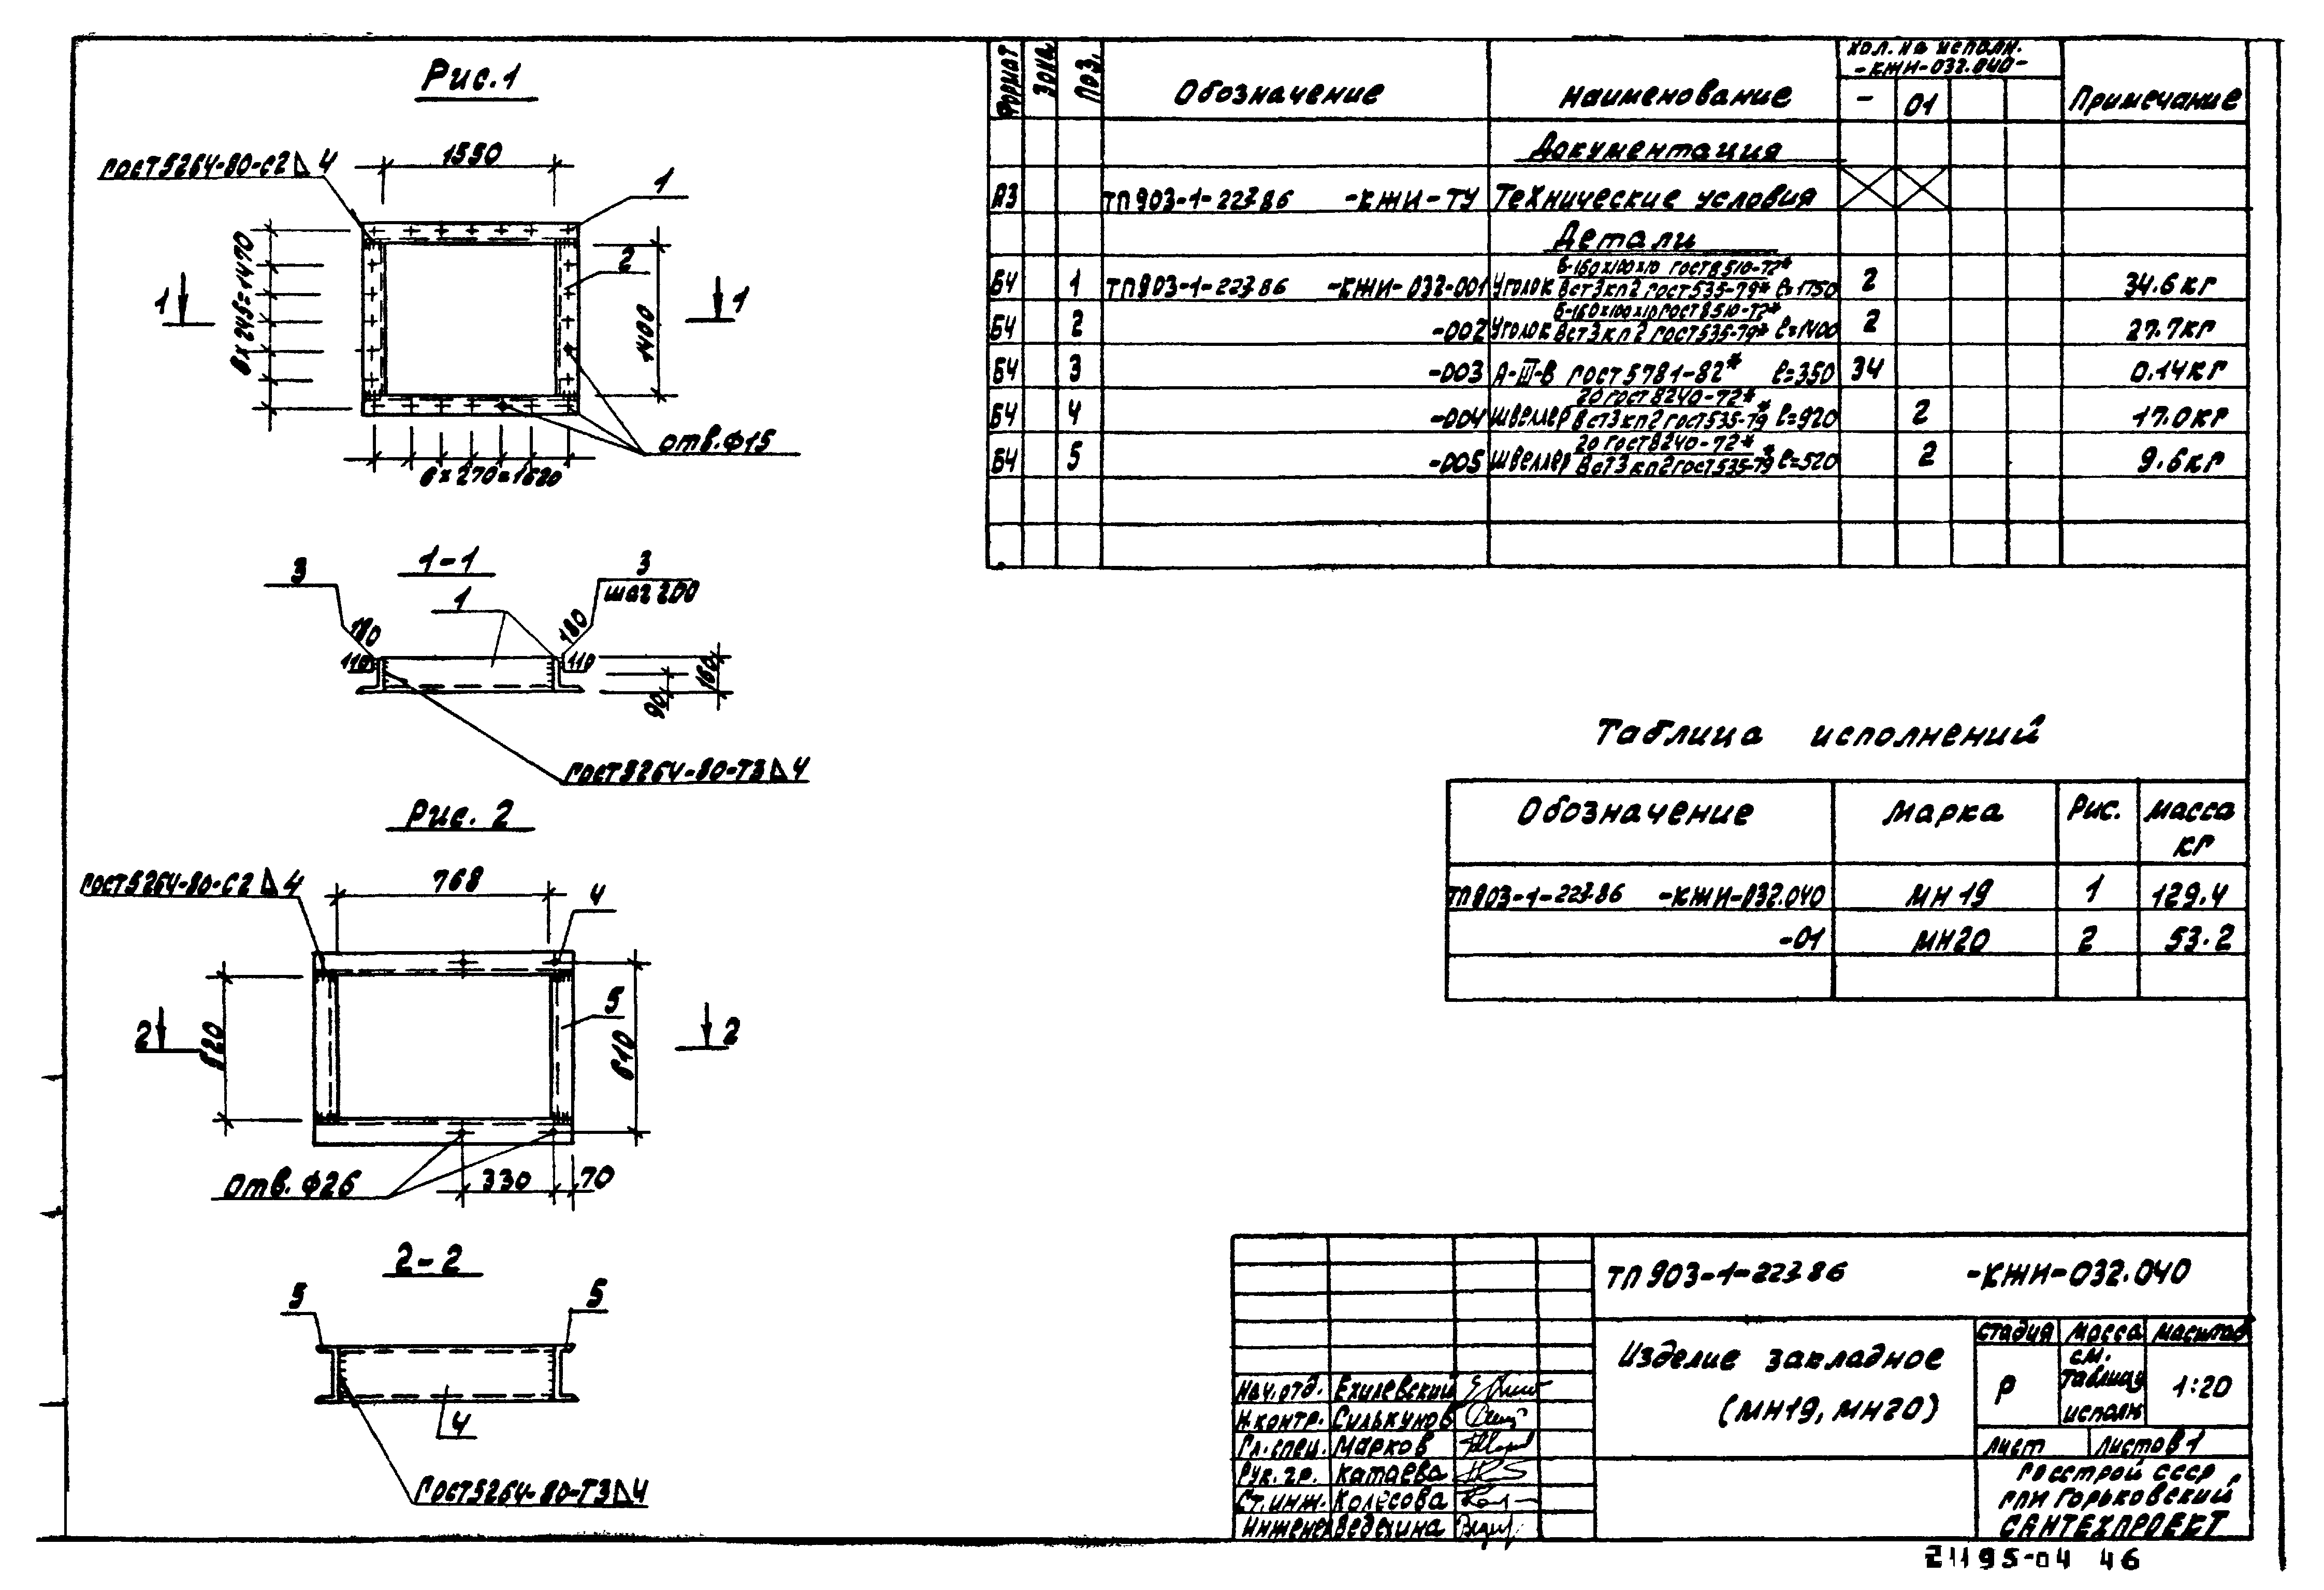 Рис.1
ГОСТ 5264-80-С2 4
1550
1
2
6×245=1470
1 1
1400
отв.ф15
6×270=1620
1-1
3
3
шаг 200
1
180
180
110
110
160
90
ГОСТ 5264-80-Т3 4
Рис. 2
ГОСТ 5264-80-С2 4
768
4
5
520
610
2 2
Отв. ф26
330 70
2-2
5 5
4
ГОСТ 5264-80-Т3 4
Формат Зона Поз. Обозначение Наименование Кол. на исполн. -КЖИ-032.040- Примечание
- 01
Документация
А3 ТП903-1-223.86 -КЖИ-ТУ Технические условия
Детали
БЧ 1 ТП903-1-223.86 -КЖИ-032-001 Уголок Б-160×100×10 ГОСТ 8510-72* ВСт3кп2 ГОСТ 535-79* ℓ=1750 2 34.6кг
БЧ 2 -002 Уголок Б-160×100×10 ГОСТ 8510-72* ВСт3кп2 ГОСТ 535-79* ℓ=1400 2 27.7кг
БЧ 3 -003 А-III-В ГОСТ 5781-82* ℓ=350 34 0.14кг
БЧ 4 -004 Швеллер 20 ГОСТ 8240-72* ВСт3кп2 ГОСТ 535-79* ℓ=920 2 17.0кг
БЧ 5 -005 Швеллер 20 ГОСТ 8240-72* ВСт3кп2 ГОСТ 535-79* ℓ=520 2 9.6кг
Таблица исполнений
Обозначение Марка Рис. Масса кг
ТП903-1-223.86 -КЖИ-032.040 МН19 1 129.4
-01 МН20 2 53.2
ТП903-1-223.86 -КЖИ-032.040
Изделие закладное
(МН19, МН20)
Стадия Масса Масштаб
Р см. таблицу исполн. 1:20
Лист Листов 1
Госстрой СССР
ГПИ Горьковский
САНТЕХПРОЕКТ
Нач.отд. Ехилевский
Н.контр. Силькунов
Гл.спец. Марков
Рук.гр. Катаева
Ст.инж. Колесова
Инженер Ведехина
21195-04 46